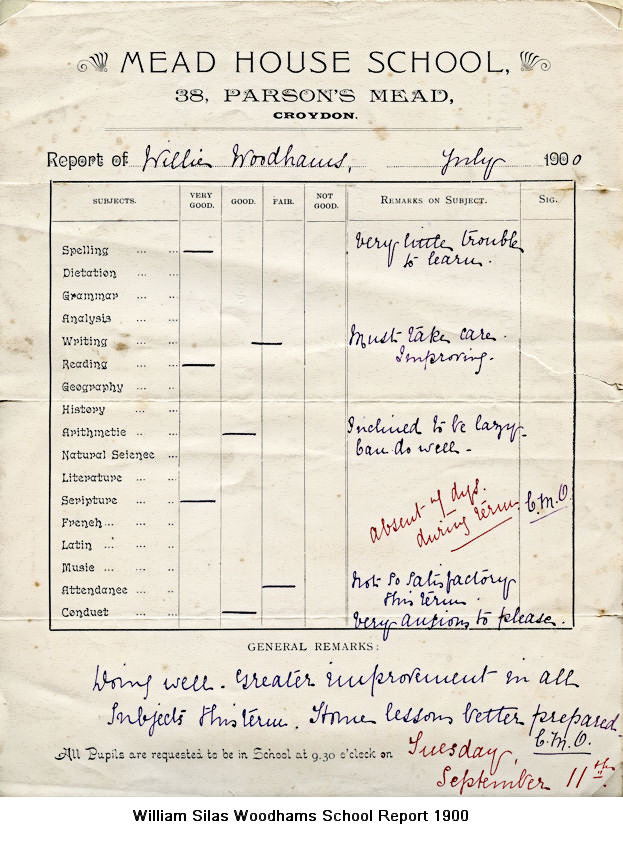 MEAD HOUSE SCHOOL,
38, PARSON'S MEAD,
CROYDON.
Report of Willie Woodhams, July 1900
SUBJECTS. VERY GOOD. GOOD. FAIR. NOT GOOD. REMARKS ON SUBJECT. SIG.
Spelling ... ... — Very little trouble
to learn.
Dictation ... ...
Grammar ... ...
Analysis ... ...
Writing ... ... — Must take care.
Improving.
Reading ... ... —
Geography ... ..
History ... ...
Arithmetic .. .. — Inclined to be lazy.
Can do well.
Natural Science ...
Literature ... ...
Scripture ... .. — absent 4 dys. C.M.O.
during term
French ... ... ..
Latin ... ... ..
Music ... ... ..
Attendance ... .. — Not so satisfactory
this term.
Conduct ... ... — Very anxious to please.
GENERAL REMARKS:
Doing well. Greater improvement in all
Subjects this term. Home lessons better prepared.
C.M.O.
All Pupils are requested to be in School at 9.30 o'clock on Tuesday,
September 11th.
William Silas Woodhams School Report 1900